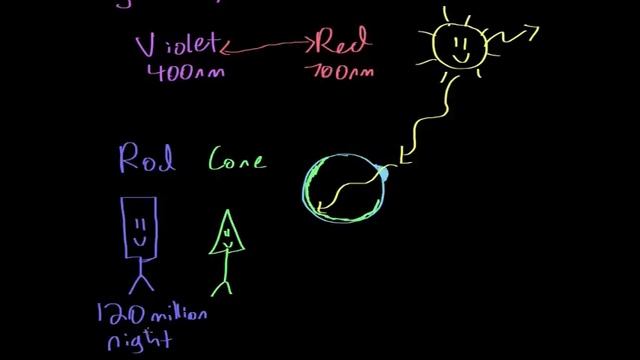 Violet Red
400nm 700nm
Rod Cone
120 million
night